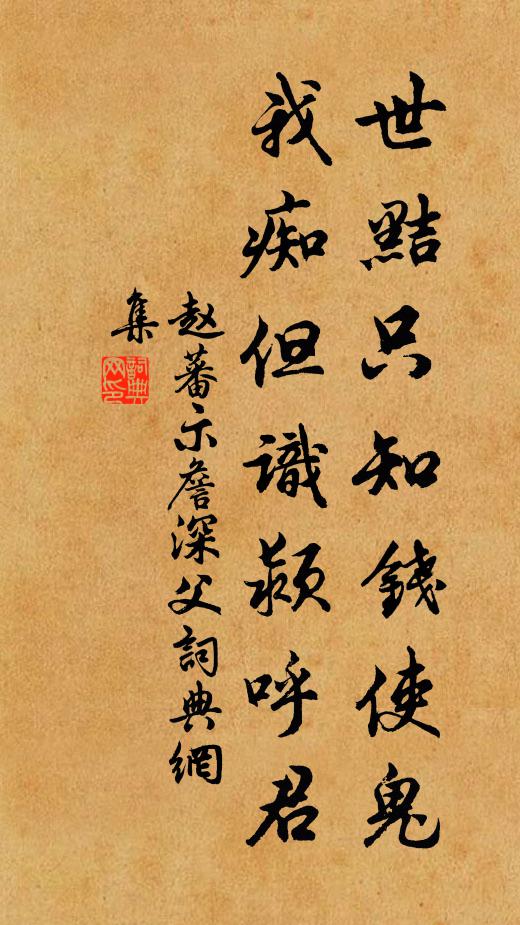 世黠只知錢使鬼
我痴但識穎呼君
赵蕃示詹深父詞典網
集
詞典网印